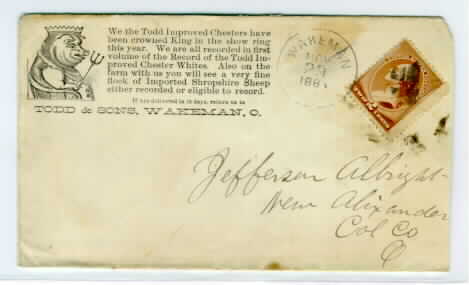 We the Todd Improved Chesters have
been crowned King in the show ring
this year. We are all recorded in first
volume of the Record of the Todd Im-
proved Chester Whites. Also on the
farm with us you will see a very fine
flock of Imported Shropshire Sheep
either recorded or eligible to record.
If not delivered in 10 days, return to
TODD & SONS, WAKEMAN, O.
WAKEMAN
188
Jefferson Albright
New Alixander
Col Co
O